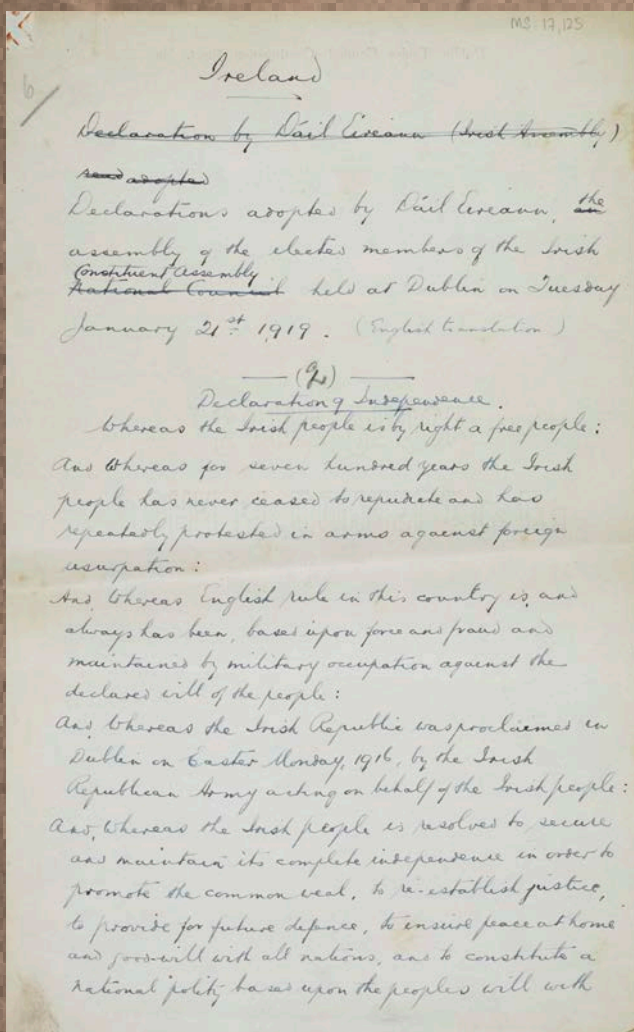 MS 17,125
6/
Ireland
Declaration by Dáil Eireann (Irish Assembly)
read adopted
Declarations adopted by Dáil Eireann, an the
assembly of the elected members of the Irish
Constituent Assembly
National Council held at Dublin on Tuesday
January 21st 1919. (English translation)
Declaration of Independence.
Whereas the Irish people is by right a free people:
And Whereas for seven hundred years the Irish
people has never ceased to repudiate and has
repeatedly protested in arms against foreign
usurpation:
And Whereas English rule in this country is, and
always has been, based upon force and fraud and
maintained by military occupation against the
declared will of the people:
And Whereas the Irish Republic was proclaimed in
Dublin on Easter Monday, 1916, by the Irish
Republican Army acting on behalf of the Irish people:
And, Whereas the Irish people is resolved to secure
and maintain its complete independence in order to
promote the common weal, to re-establish justice,
to provide for future defence, to insure peace at home
and good-will with all nations, and to constitute a
national polity based upon the peoples will with